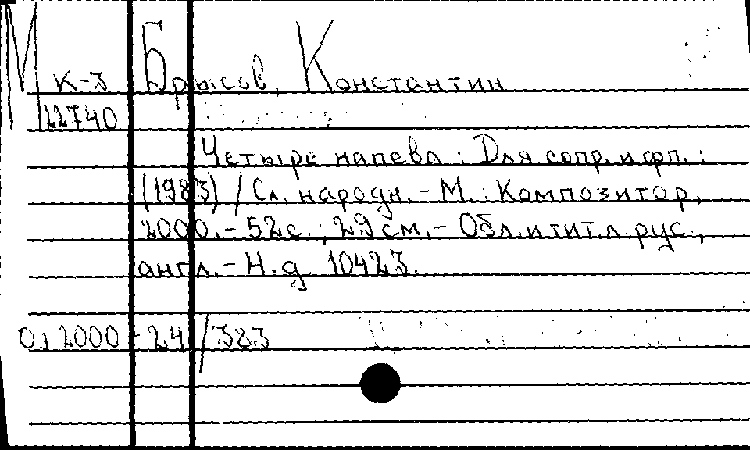 М к-3 Брысов, Константин
11740
Четыре напева : Для сопр. и фп. :
(1983) / Сл. народн. - М. : Композитор,
2000. - 52 с. ; 29 см. - Обл. и тит. л. рус.,
англ. - Н. д. 10423.
01 2000 - 24 / 383